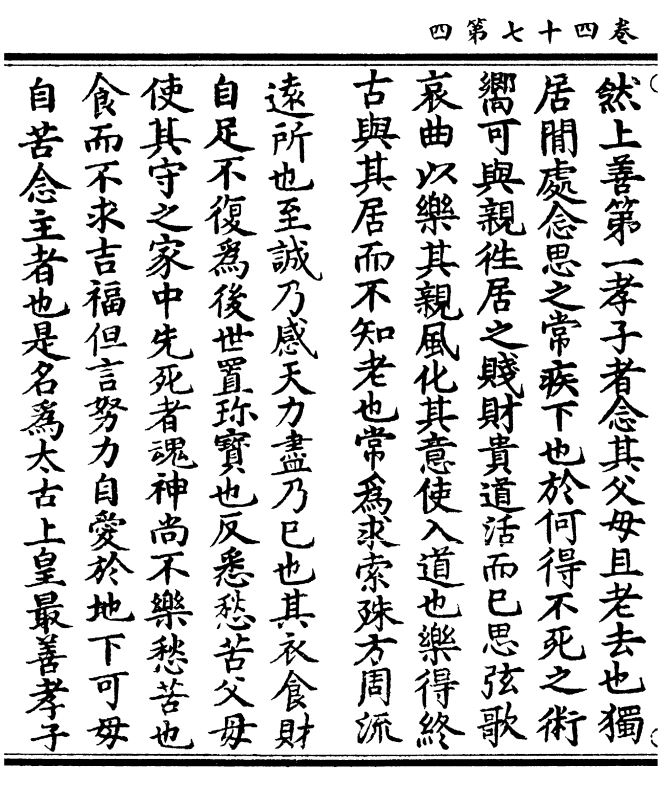 卷四十七第四
然上善第一孝子者念其父母且老去也獨
居閒處念思之常疾下也於何得不死之術
嚮可與親徃居之賤財貴道活而巳思弦歌
哀曲以樂其親風化其意使入道也樂得終
古與其居而不知老也常爲求索殊方周流
遠所也至誠乃感天力盡乃巳也其衣食財
自足不復爲後世置珎寶也反悉愁苦父母
使其守之家中先死者魂神尚不樂愁苦也
食而不求吉福但言努力自愛於地下可毋
自苦念主者也是名爲太古上皇最善孝子